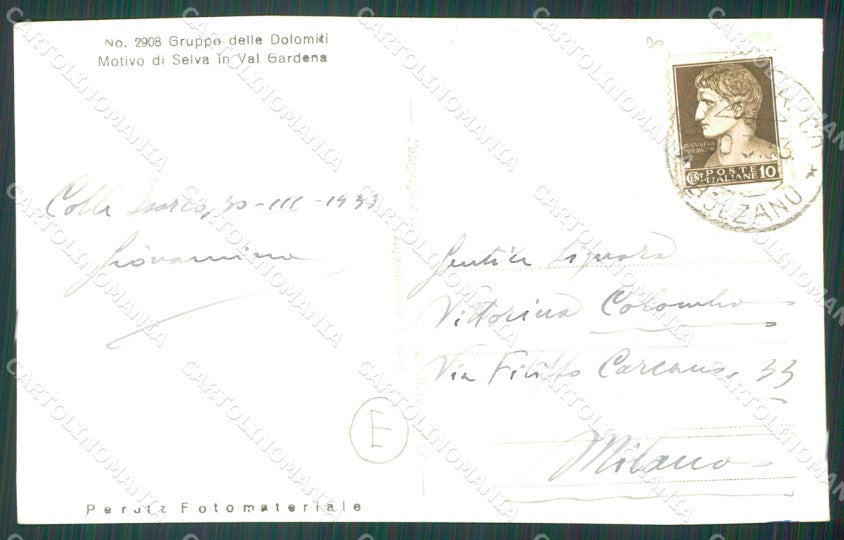 No. 2908 Gruppo delle Dolomiti
Motivo di Selva in Val Gardena
Colle Isarco, 30-III-1933
Giovannina
POSTE
ITALIANE
CENT 10
BOLZANO
Gentile Signora
Vittorina Colombo
Via Filippo Carcano, 33
Milano
E
Perutz Fotomateriale
CARTOLINOMANIA